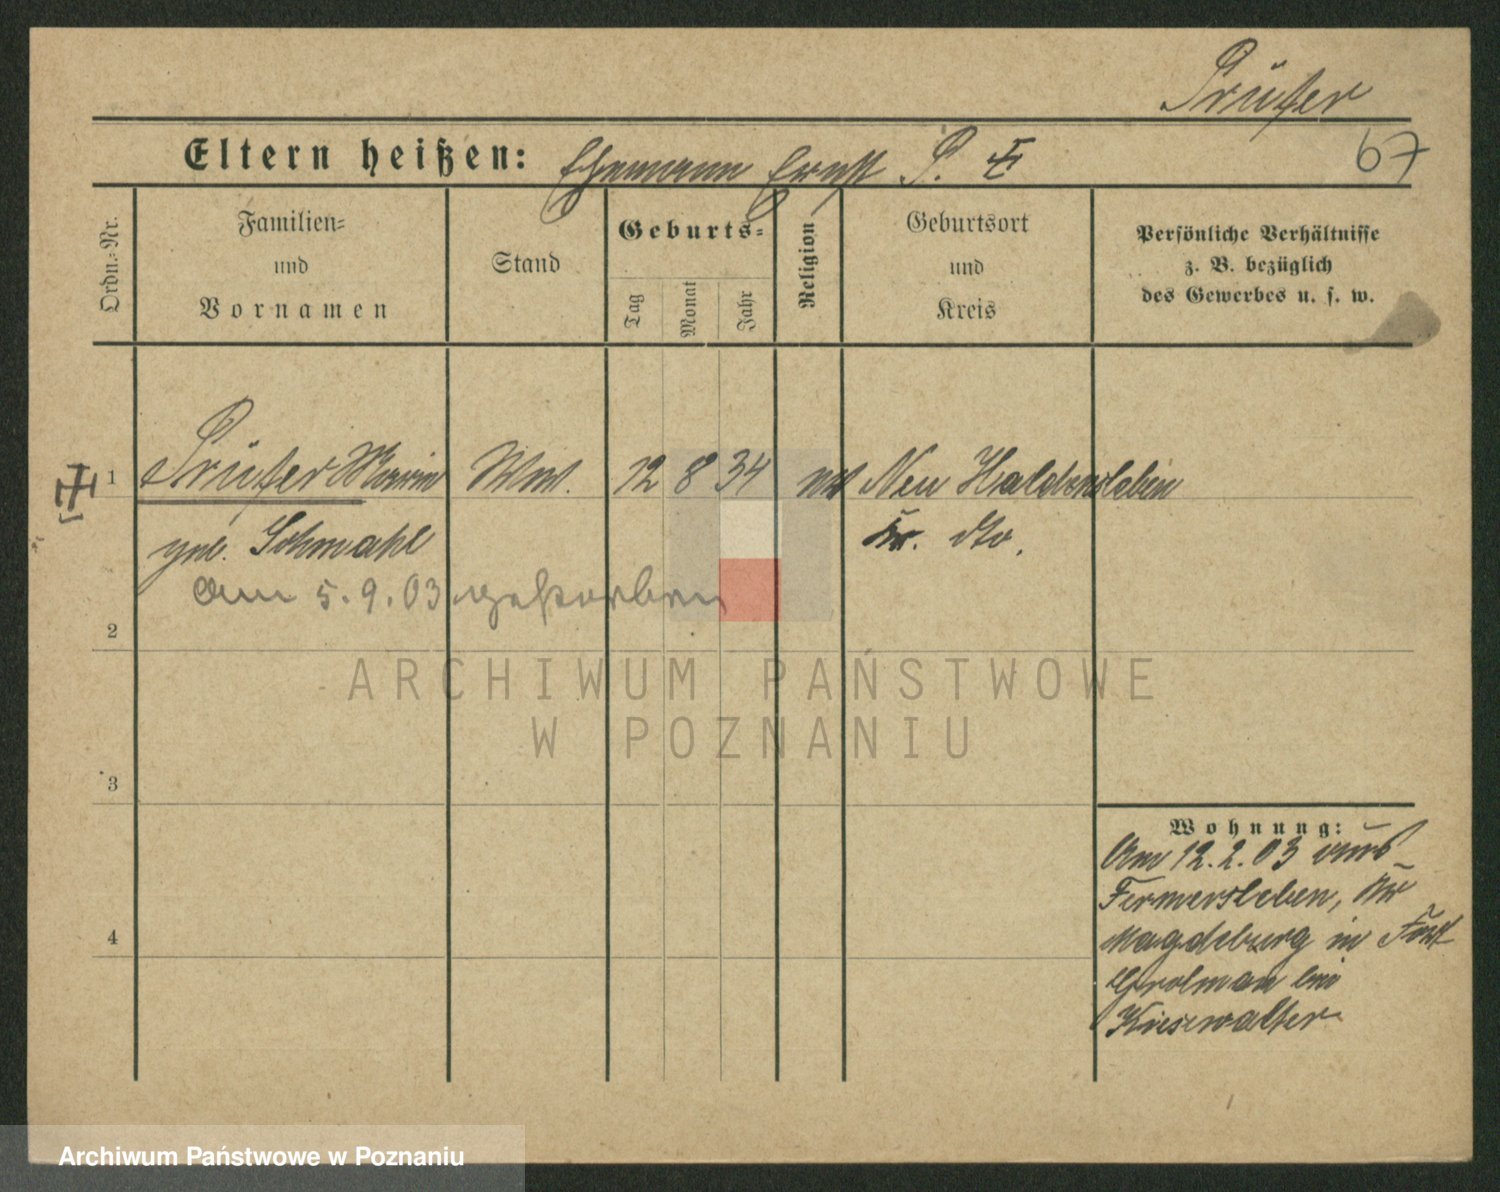 Prüfer
67
Eltern heißen: Ehemann Ernst P. ‡
Ordn.=Nr.
Familien=
und
Vornamen
Stand
Geburts=
Tag
Monat
Jahr
Religion
Geburtsort
und
Kreis
Persönliche Verhältnisse
z. B. bezüglich
des Gewerbes u. s. w.
1 Prüfer Marie Ww. 12 8 34 Neu Haldensleben
geb. Schmahl Kr. dto.
Am 5.9.03 gestorben
2
ARCHIWUM PAŃSTWOWE
W POZNANIU
3
Wohnung:
Am 12.2.03 aus
Fermersleben, Kr
4
Magdeburg in Fort
Grolman bei
Kiesewalter
Archiwum Państwowe w Poznaniu